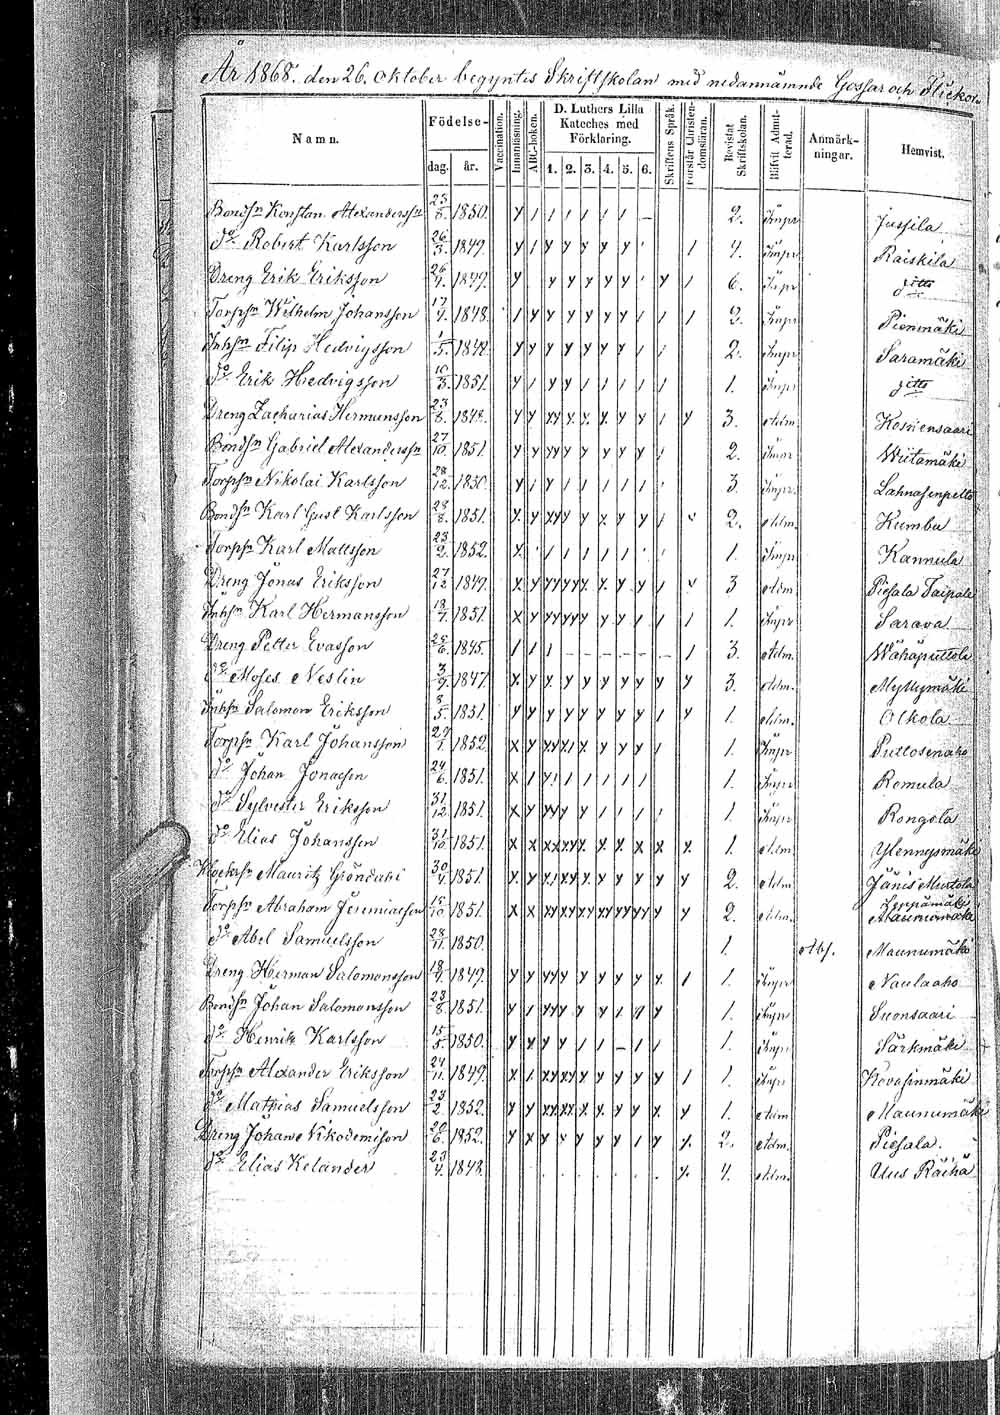 År 1868. den 26. Oktober begyntes Skriftskolan med nedannämnde Gossar och Flickor
Namn. Födelse- dag. år. Vaccination. Innanläsning. ABC-boken. D. Luthers Lilla Kateches med Förklaring. 1. 2. 3. 4. 5. 6. Skriftens Språk. Förstår Christendomsläran. Bevistat Skriftskolan. Blifvit Admitterad. Anmärkningar. Hemvist.
Bondsn Konstan. Alexandersson 23/8. 1850. 2. Impr Jussila
do Robert Karlsson 26/3. 1849. 4. Impr Raiskila
Dreng Erik Eriksson 26/4. 1849. 6. Impr ditto
Torpsn Wilhelm Johansson 17/4. 1848. 2. Impr Pienmäki
Inhsn Filip Hedvigsson 1/5. 2. Impr Saramäki
do Erik Hedvigsson 10/3. 1851. 1. Impr ditto
Dreng Zacharias Hermansson 23/8. 1848. 3. Adm.
Bondsn Gabriel Alexandersson 27/10. 1851. 2. Impr Wiitamäki
Torpsn Nikolai Karlsson 28/12. 1850. 3. Impr. Lahnasenpelto
Bondsn Karl Gust Karlsson 28/8. 1851. 2. Adm. Kumbu
Torpsn Karl Mattsson 23/2. 1852. 1. Impr Kannula
Dreng Jonas Eriksson 27/12 1849. 3 Adm. Piesala Taipale
Inhsn Karl Hermansson 18/4. 1851. 1. Impr Sarava
Dreng Petter Evasson 28/6. 1845. 3. Adm. Wähäputtola
do Moses Neslin 3/9. 1847. 3. Adm. Myllymäki
Inhsn Salomon Eriksson 8/5. 1851. 1. Adm. Olkola
Torpsn Karl Johansson 1852. 1. Impr Putlosenaho
do Johan Jonasson 24/6. 1851. 1. Impr Romula
do Sylvester Eriksson 31/12 1851. 1. Impr Rongola
do Elias Johansson 31/10. 1851. 1. Adm. Ylennysmäki
Mauritz Gröndahl 30/4. 1851. 2. Adm Jänis Murtola
Torpsn Abraham Jeremiaesson 15/10 1851. 2. Adm.
do Abel Samuelsson 28/11. 1850. 1. Maunumäki
Dreng Herman Salomonsson 18/4. 1849. 1. Impr Naulaaho
Bondsn Johan Salomonsson 28/8. 1851. 1. Impr Suonsaari
do Henrik Karlsson 15/5. 1850. 1. Impr Särkmäki
Torpsn Alexander Eriksson 24/11. 1849. 1. Impr Kovasinmäki
do Mathias Samuelsson 23/2 1852. 1. Adm Maunumäki
Dreng Johan Nikodemison 20/6. 1852. 2. Adm. Piesala.
do Elias Kelander 23/4. 1848. 4. Adm. Uus Räihä